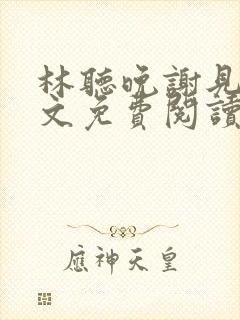 林聽晚謝見
文免費閱讀
應神天皇